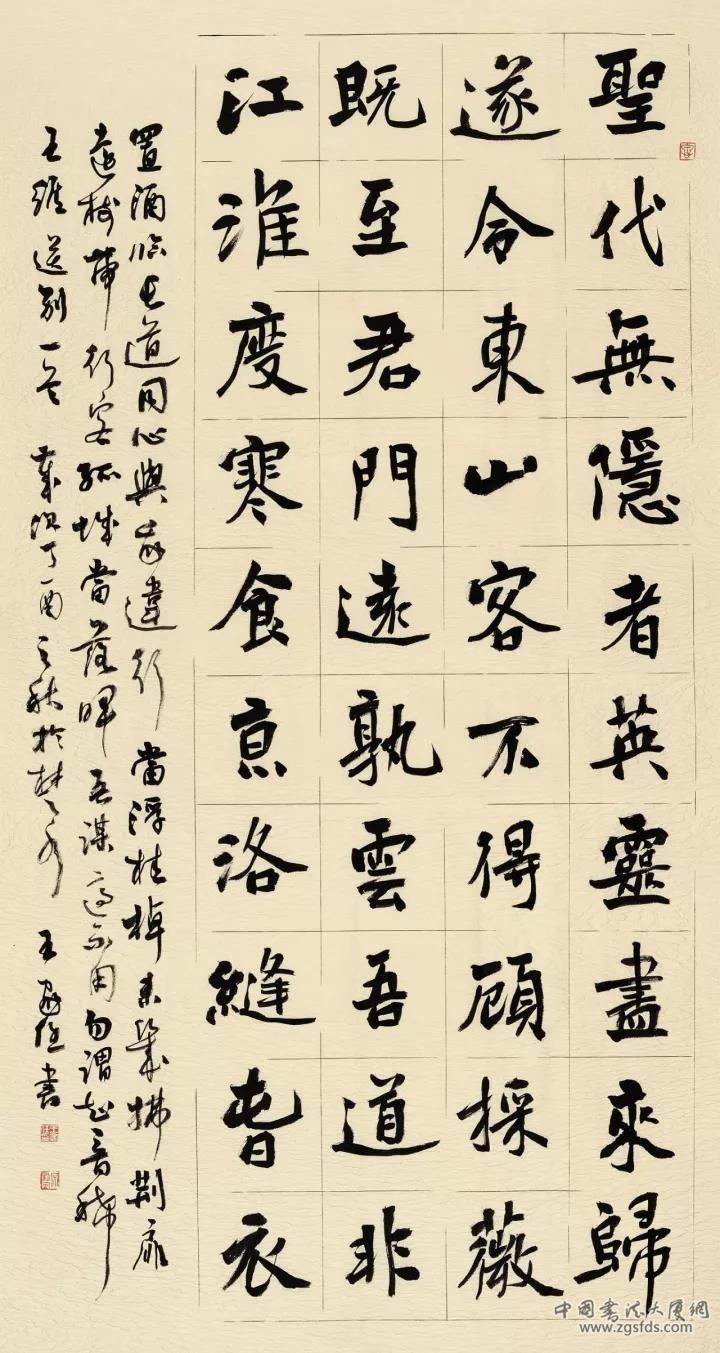 聖代無隱者英靈盡來歸
遂令東山客不得顧採薇
既至君門遠孰雲吾道非
江淮度寒食京洛縫春衣
置酒臨長道同心與我違行當浮桂棹未幾拂荊扉
遠樹帶行客孤城當落暉吾謀適不用勿謂知音稀
王維送別一首 歲次丁酉之秋於 王 書
中国書法大厦網
www.zgsfds.com